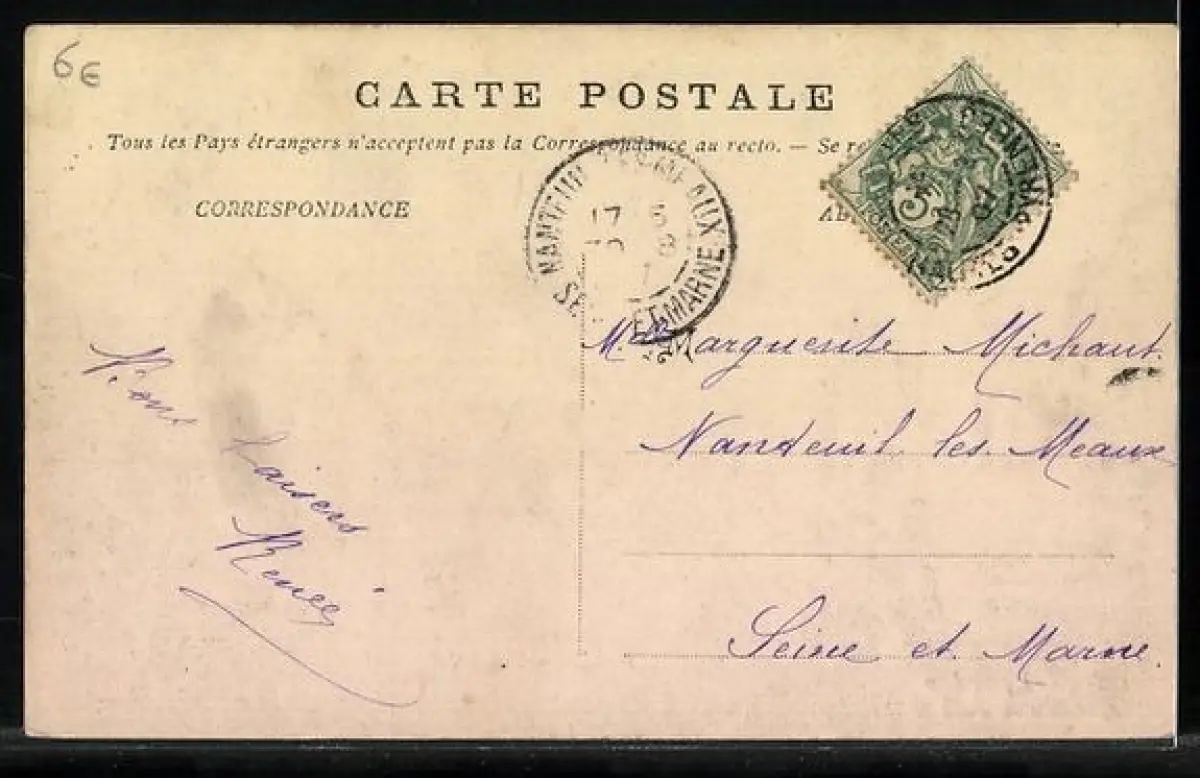 6€
CARTE POSTALE
Tous les Pays étrangers n'acceptent pas la Correspondance au recto. — Se re
CORRESPONDANCE
NANTEUIL-LES-MEAUX
17 5
8
SE ET MARNE
5
07
Melle Marguerite Michaut
Nanteuil les Meaux
Seine et Marne.
baisers
Renée